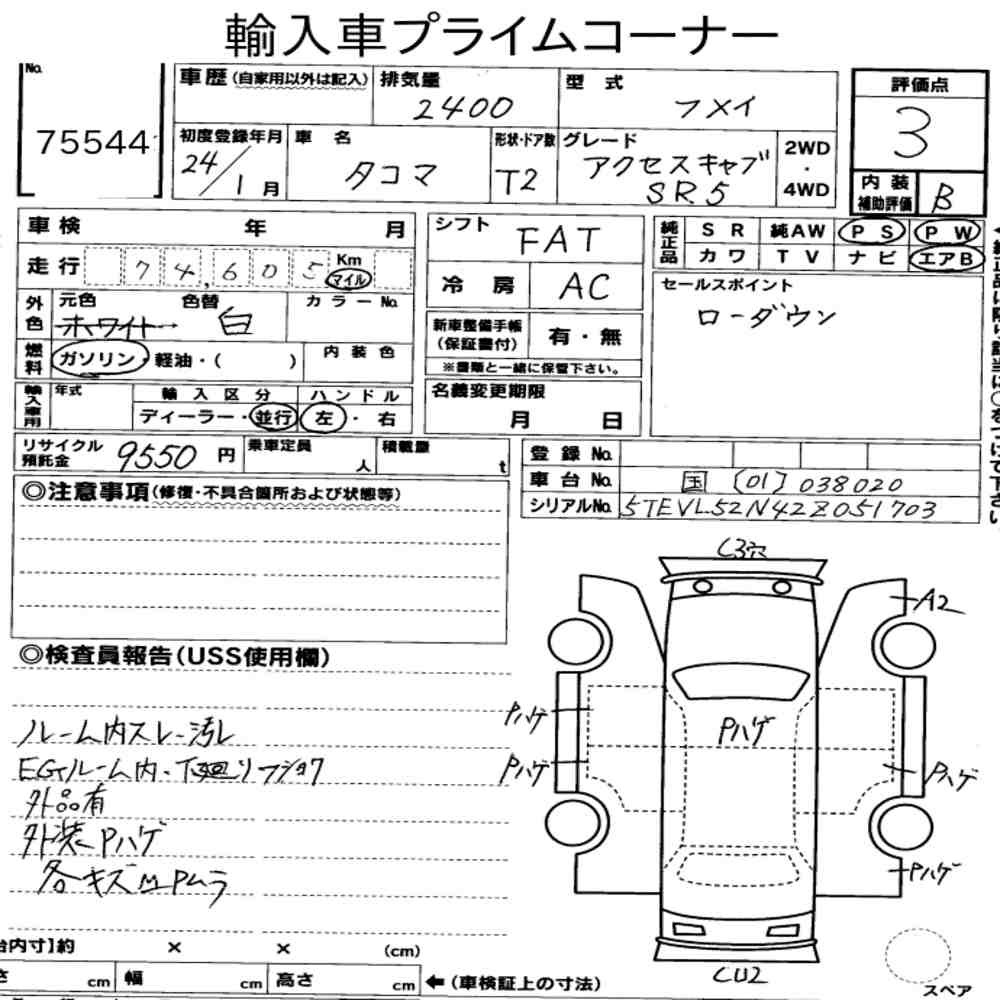 輸入車プライムコーナー
No.
75544
車歴(自家用以外は記入)
排気量
2400
型式
フメイ
評価点
3
初度登録年月
24/1月
車名
タコマ
形状・ドア数
T2
グレード
アクセスキャブ
SR5
2WD
・
4WD
内装
補助評価
B
車検 年 月
走行 74,605 Km
マイル
外色
元色
ホワイト
色替
白
カラーNo.
燃料
ガソリン・軽油・( )
内装色
輸入車用
年式
輸入区分
ディーラー・並行
ハンドル
左・右
シフト
FAT
冷房
AC
新車整備手帳
(保証書付)
有・無
※書類と一緒に保管下さい。
名義変更期限
月 日
純正品
SR 純AW PS PW
カワ TV ナビ エアB
セールスポイント
ローダウン
リサイクル
預託金
9550円
乗車定員
人
積載量
t
登録No.
車台No.
国 [01] 038020
シリアルNo.
5TEVL52N42Z051703
◎注意事項(修復・不具合箇所および状態等)
◎検査員報告(USS使用欄)
ルーム内スレ・汚レ
EGルーム内・下廻リフショク
外品有
外装Pハゲ
各キズ凹Pムラ
C3穴
A2
Pハゲ
Pハゲ
Pハゲ
Pハゲ
Pハゲ
CU2
スペア
台内寸]約 × × (cm)
さ cm
幅 cm
高さ cm
←(車検証上の寸法)